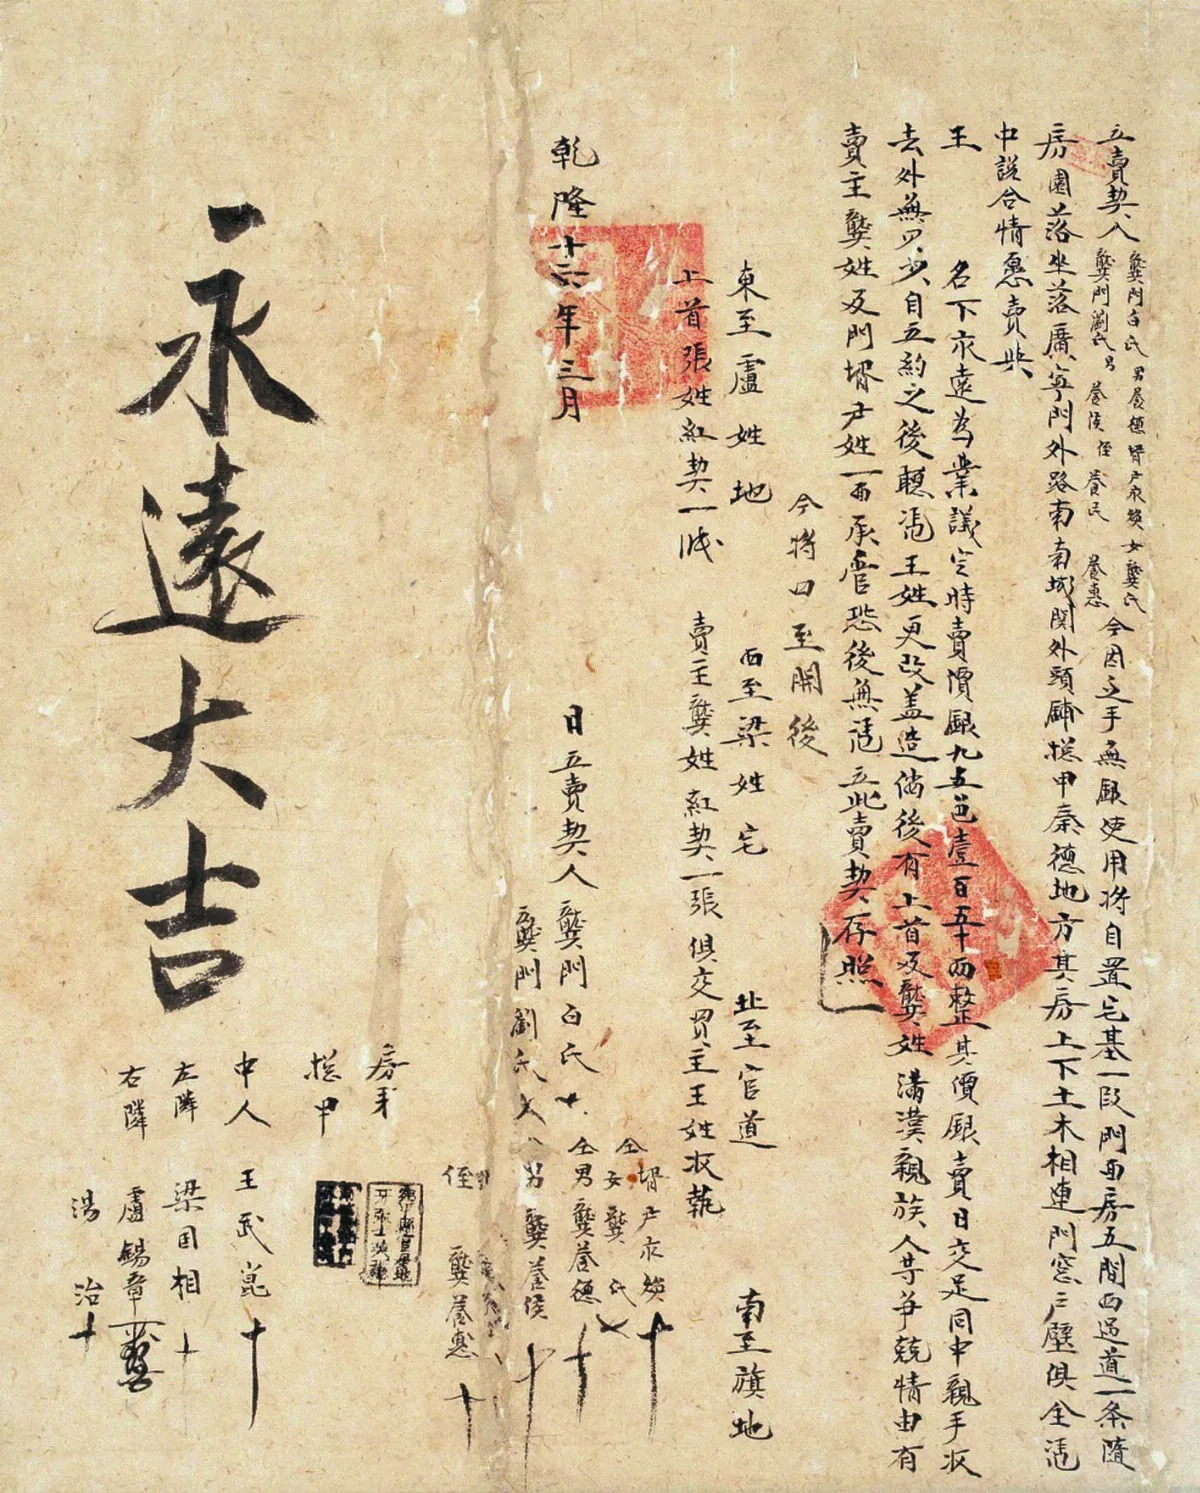 立賣契人
龔門白氏 男養德 壻尹永煥 女龔氏
龔門劉氏 男 養俊 侄 養民 養惠
今因乏手無銀使用將自置宅基一段門面房五間西過道一条隨
房園落坐落廣寧門外路南南城関外頭鋪捴甲秦德地方其房上下土木相連門窓户壁俱全憑
中說合情愿賣與
王 名下永遠為業議定時賣價銀九五色壹百五十兩整其價銀賣日交足同中親手收
去外無欠少自立約之後聽憑王姓更改盖造倘後有上首及龔姓滿漢親族人等爭競情由有
賣主龔姓及門壻尹姓一面承管恐後無憑立此賣契存照
今將四至開後
東至盧姓地 西至梁姓宅 北至官道 南至旗地
上首張姓紅契一 賣主龔姓紅契一張俱交買主王姓收執
乾隆十六年三月 日立賣契人龔門白氏十
龔門劉氏
仝壻尹永煥十
仝女龔氏
仝男龔養德十
男龔養俊十
侄 龔養惠十
房牙
捴甲
中人 王武崑十
左隣 梁国相十
右隣 盧錫章
湯治十
永遠大吉